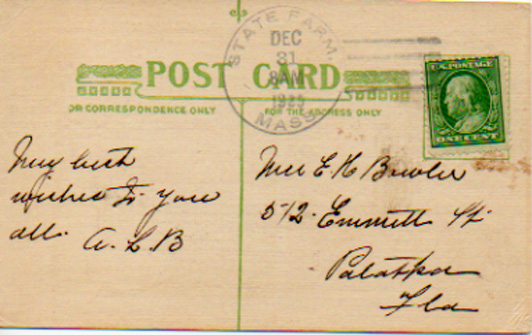 STATE FARM.
DEC
31
8 AM
MASS.
POST CARD
FOR CORRESPONDENCE ONLY
FOR THE ADDRESS ONLY
U.S. POSTAGE
ONE CENT
My best
wishes to you
all. A. L. B
Mrs E H Bowler
512. Emmett St
Palatka
Fla